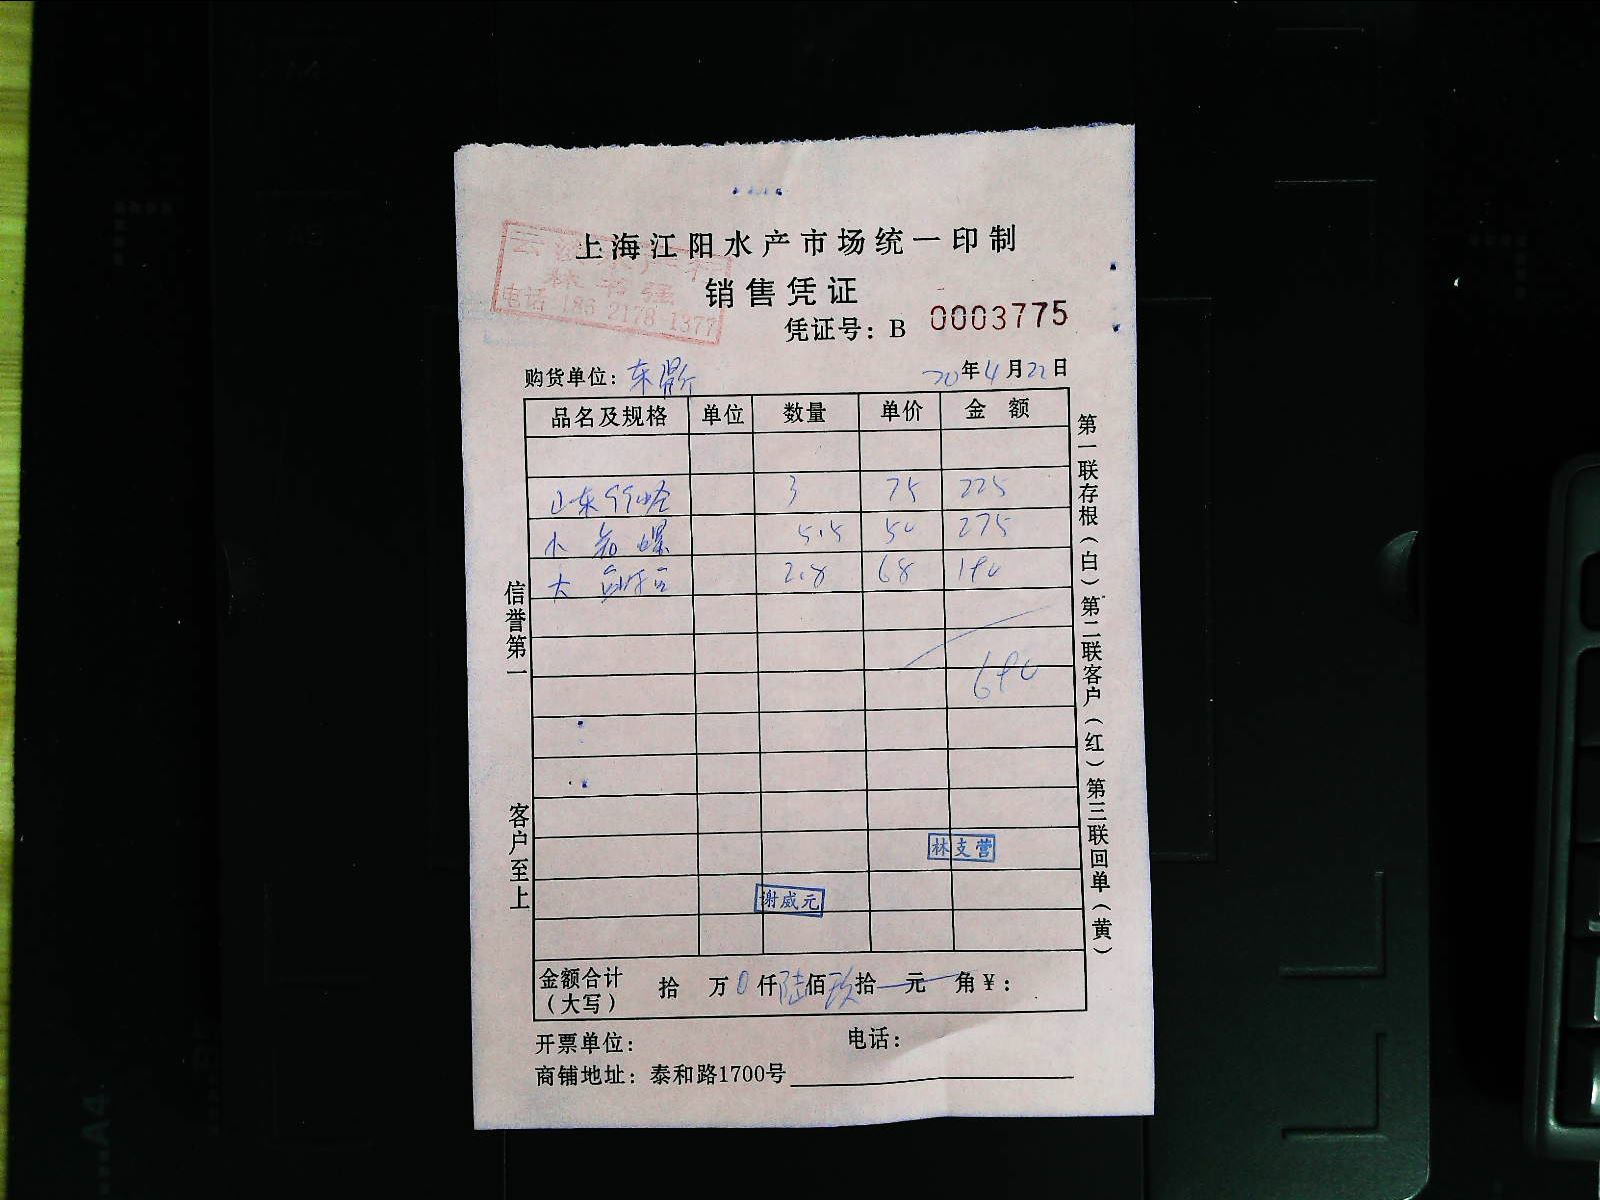 上海江阳水产市场统一印制
林书强
电话 186 2178 1377
销售凭证
凭证号：B 0003775
购货单位：东 20年4月22日
品名及规格 单位 数量 单价 金额
山东 3 75 225
小 螺 5.5 50 275
大 2.8 68 190
690
林支营
谢威元
金额合计（大写） 拾 万0仟陆佰玖拾 元 角￥：
开票单位： 电话：
商铺地址：泰和路1700号
信誉第一 客户至上
第一联存根（白）第二联客户（红）第三联回单（黄）